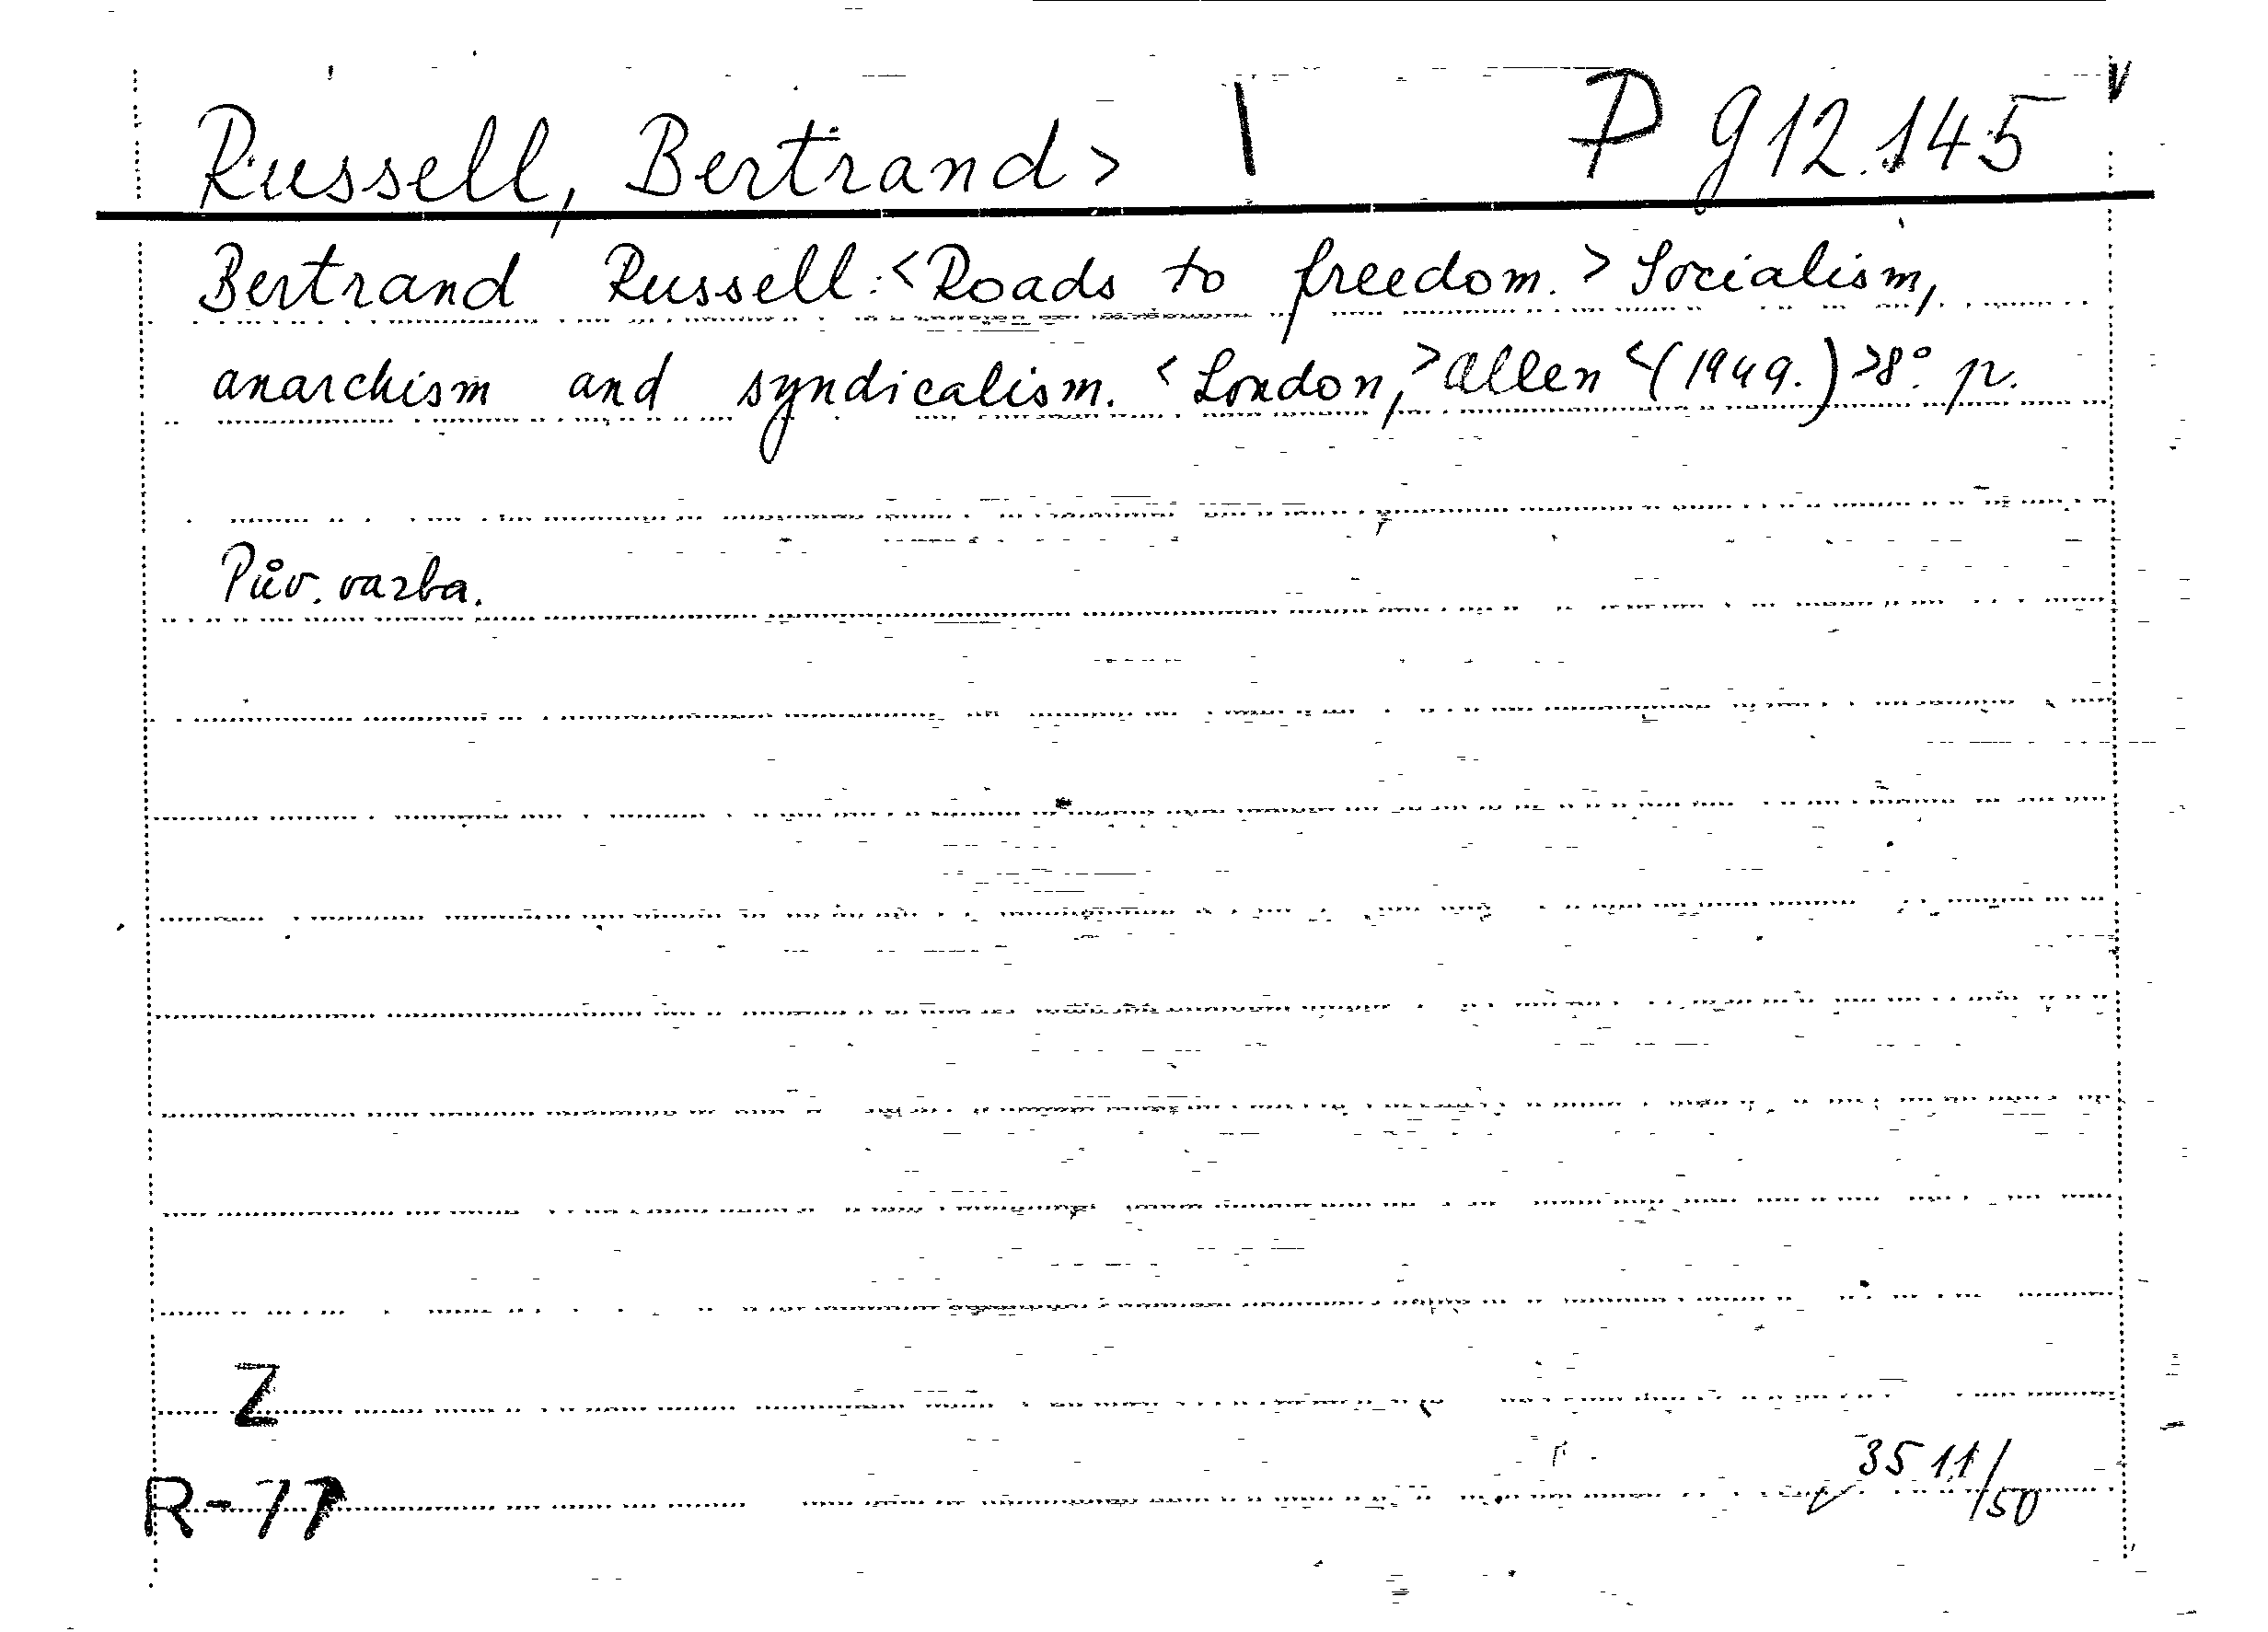 Russell, Bertrand> | P g 12.145
Bertrand Russell: <Roads to freedom.> Socialism,
anarchism and syndicalism. <London,> Allen <(1949.)> 8° p.
Pův. vazba.
Z
R-77
3511/50